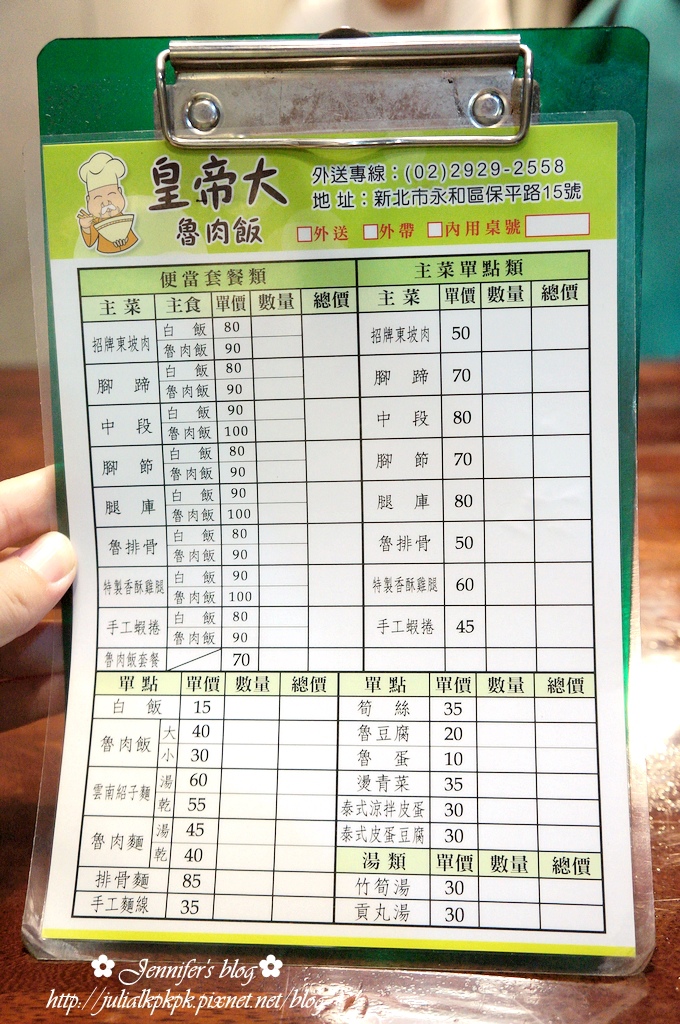 皇帝大
魯肉飯
外送專線：(02)2929-2558
地 址：新北市永和區保平路15號
□外送 □外帶 □內用桌號
便當套餐類
主菜 主食 單價 數量 總價
招牌東坡肉 白飯 80
魯肉飯 90
腳蹄 白飯 80
魯肉飯 90
中段 白飯 90
魯肉飯 100
腳節 白飯 80
魯肉飯 90
腿庫 白飯 90
魯肉飯 100
魯排骨 白飯 80
魯肉飯 90
特製香酥雞腿 白飯 90
魯肉飯 100
手工蝦捲 白飯 80
魯肉飯 90
魯肉飯套餐 70
主菜單點類
主菜 單價 數量 總價
招牌東坡肉 50
腳蹄 70
中段 80
腳節 70
腿庫 80
魯排骨 50
特製香酥雞腿 60
手工蝦捲 45
單點 單價 數量 總價
白飯 15
魯肉飯 大 40
小 30
雲南紹子麵 湯 60
乾 55
魯肉麵 湯 45
乾 40
排骨麵 85
手工麵線 35
單點 單價 數量 總價
筍絲 35
魯豆腐 20
魯蛋 10
燙青菜 35
泰式涼拌皮蛋 30
泰式皮蛋豆腐 30
湯類 單價 數量 總價
竹筍湯 30
貢丸湯 30
Jennifer's blog
http://julialkpkpk.pixnet.net/blog